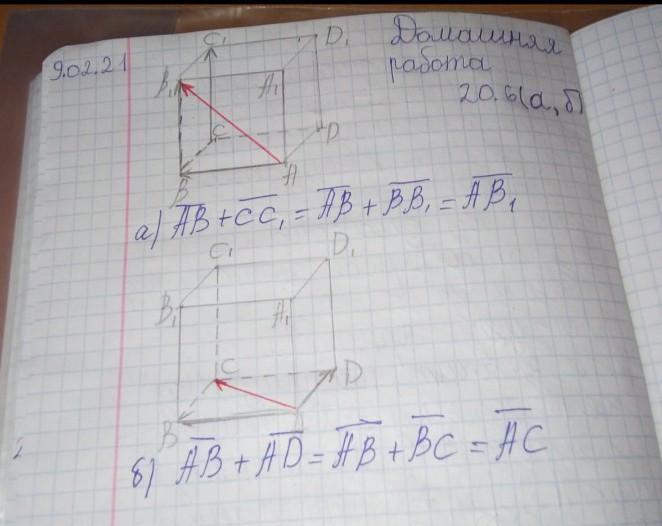 9.02.21
Домашняя
работа
20.6(а,б)
C₁ D₁
B₁ A₁
C D
B A
а) A̅B̅ + C̅C̅₁ = A̅B̅ + B̅B̅₁ = A̅B̅₁
C₁ D₁
B₁ A₁
C D
B
б) A̅B̅ + A̅D̅ = A̅B̅ + B̅C̅ = A̅C̅